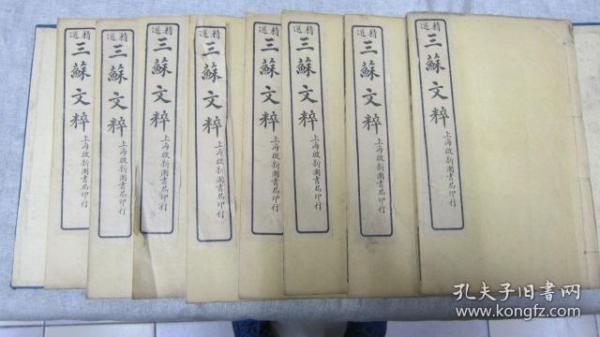 精選
三蘇文粹
上海啟新圖書局印行
精選
三蘇文粹
上海啟新圖書局印行
精選
三蘇文粹
上海啟新圖書局印行
精選
三蘇文粹
上海啟新圖書局印行
精選
三蘇文粹
上海啟新圖書局印行
精選
三蘇文粹
上海啟新圖書局印行
精選
三蘇文粹
上海啟新圖書局印行
精選
三蘇文粹
上海啟新圖書局印行
孔夫子旧書网
www.kongfz.com